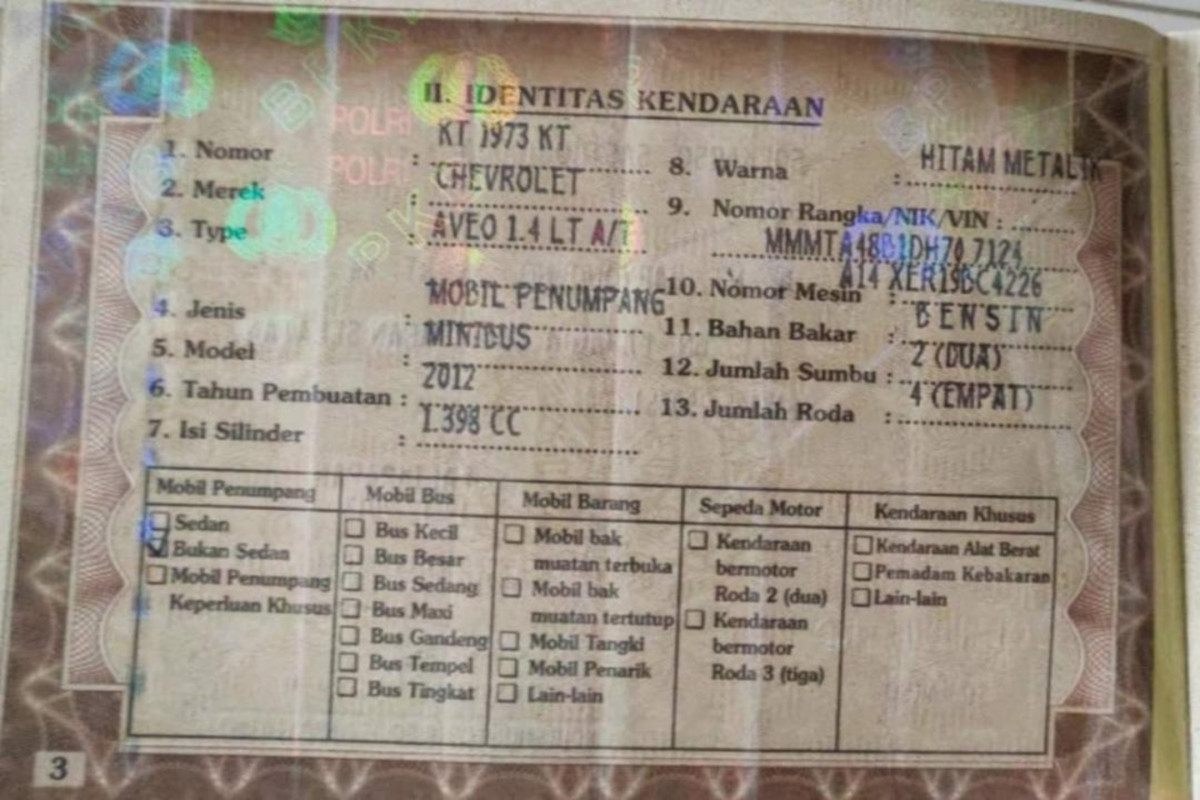 II. IDENTITAS KENDARAAN
1. Nomor : KT 1973 KT
2. Merek : CHEVROLET
3. Type : AVEO 1.4 LT A/T
4. Jenis : MOBIL PENUMPANG
5. Model : MINIBUS
6. Tahun Pembuatan : 2012
7. Isi Silinder : 1.398 CC
8. Warna : HITAM METALIK
9. Nomor Rangka/NIK/VIN :
10. Nomor Mesin :
11. Bahan Bakar : BENSIN
12. Jumlah Sumbu : 2 (DUA)
13. Jumlah Roda : 4 (EMPAT)
Mobil Penumpang
Sedan
Bukan Sedan
Mobil Penumpang
Keperluan Khusus
Mobil Bus
Bus Kecil
Bus Besar
Bus Sedang
Bus Maxi
Bus Gandeng
Bus Tempel
Bus Tingkat
Mobil Barang
Mobil bak
muatan terbuka
Mobil bak
muatan tertutup
Mobil Tangki
Mobil Penarik
Lain-lain
Sepeda Motor
Kendaraan
bermotor
Roda 2 (dua)
Kendaraan
bermotor
Roda 3 (tiga)
Kendaraan Khusus
Kendaraan Alat Berat
Pemadam Kebakaran
Lain-lain
3